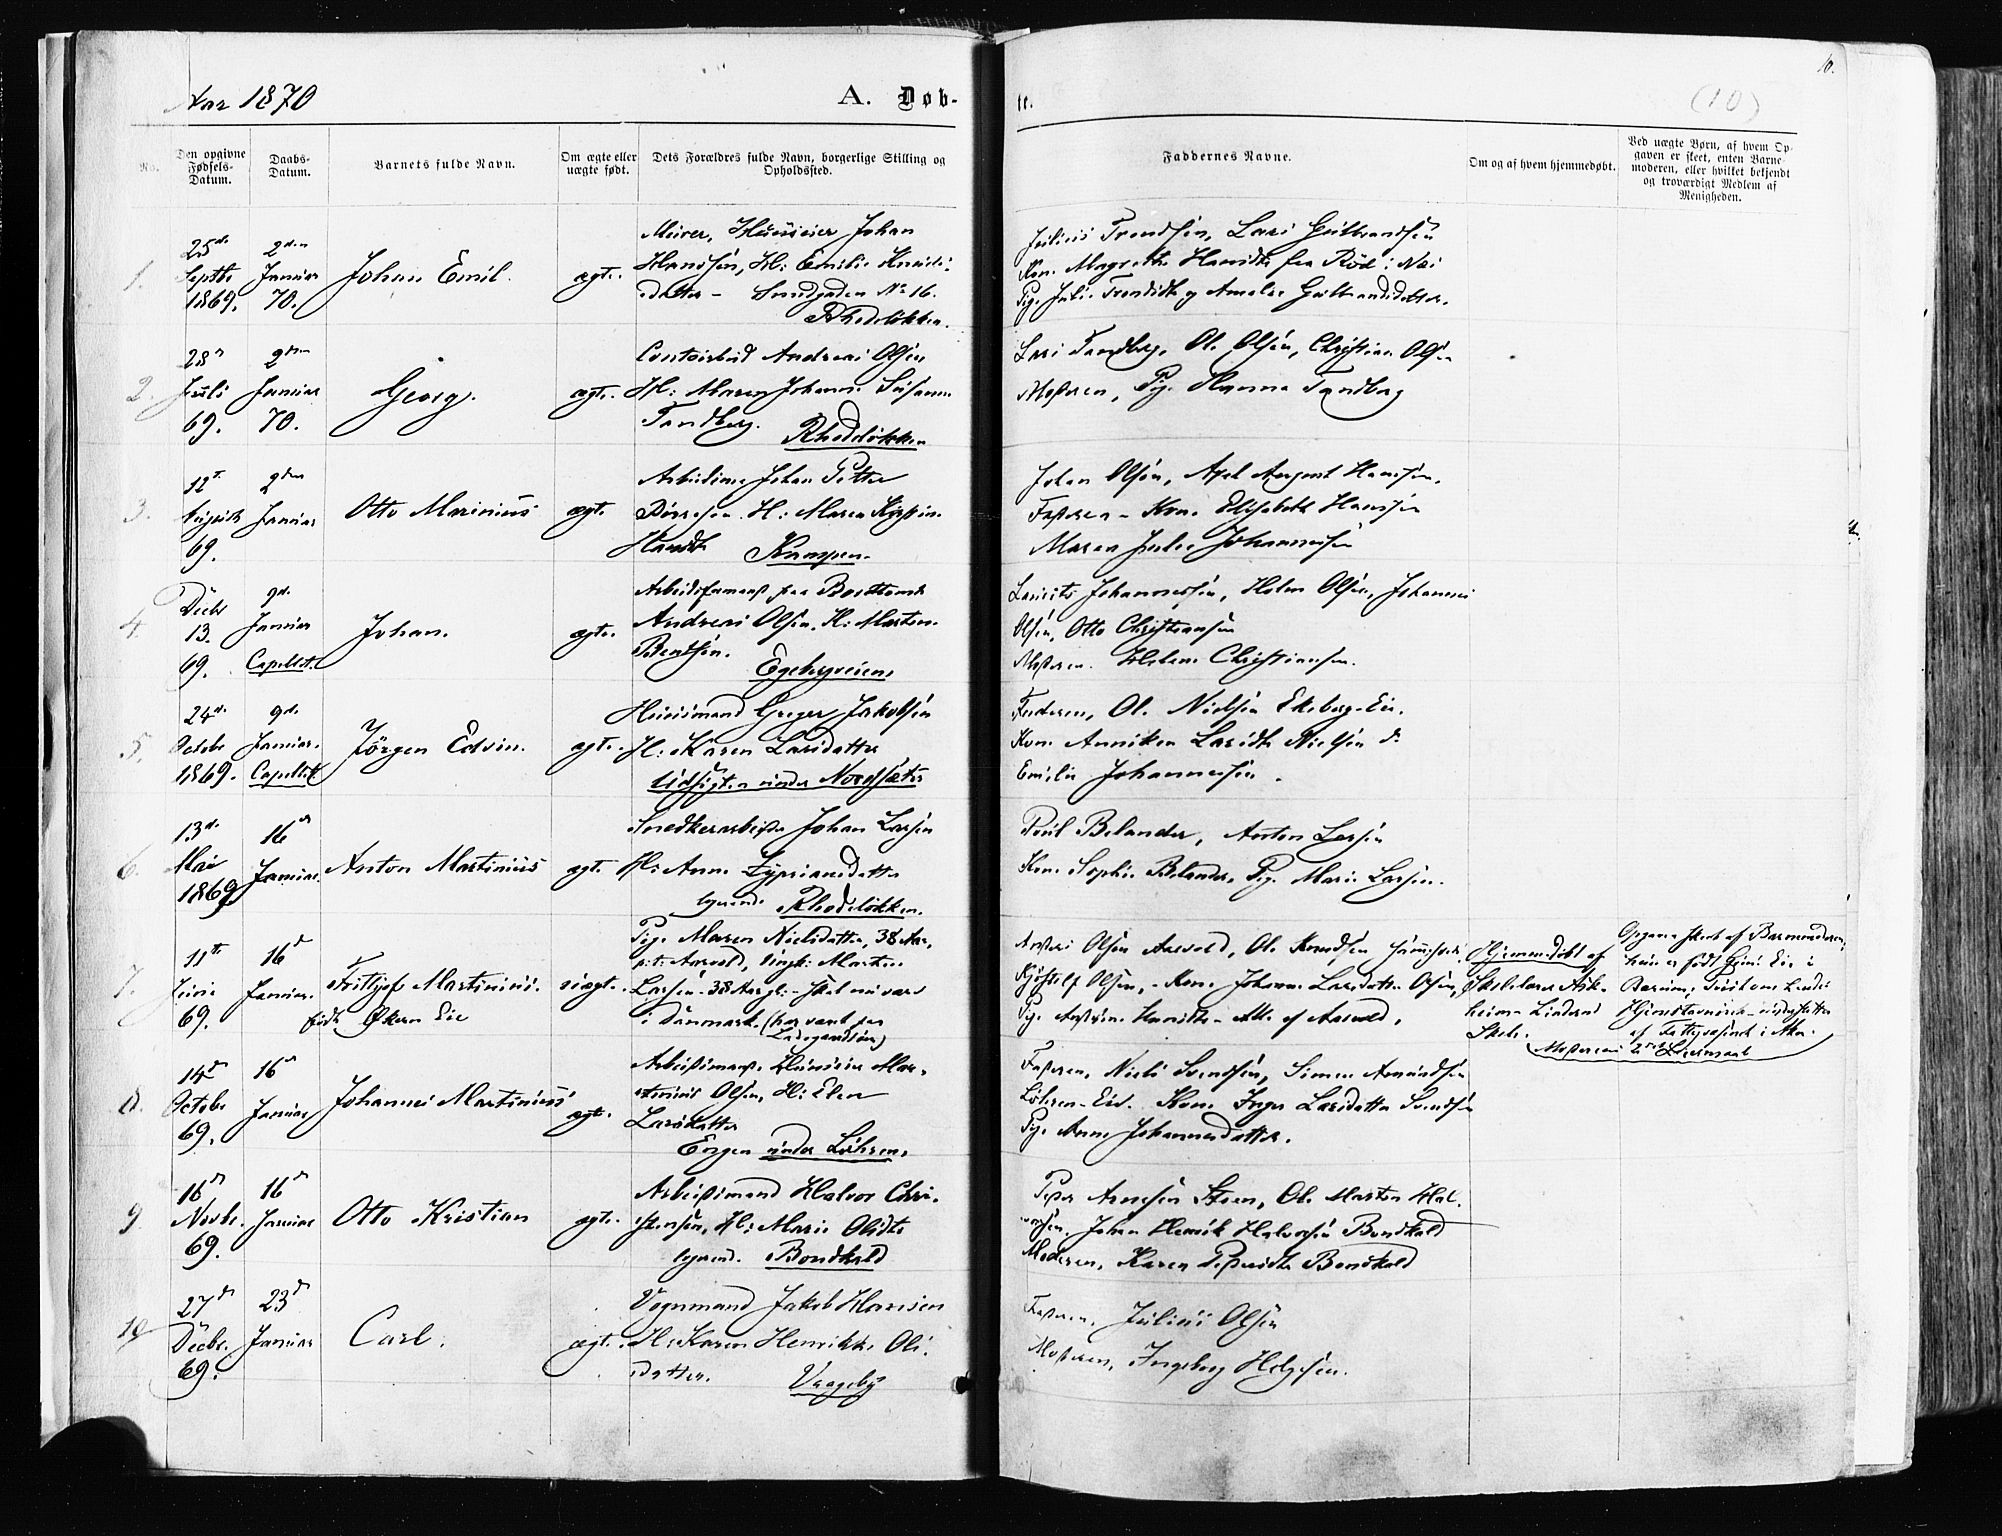 Aar 1870
A. Døb-
te.
10.
(10)
No.
Den opgivne Fødsels-Datum.
Daabs-Datum.
Barnets fulde Navn.
Om ægte eller uægte født.
Dets Forældres fulde Navn, borgerlige Stilling og Opholdssted.
Faddernes Navne.
Om og af hvem hjemmedøbt.
Ved uægte Børn, af hvem Op-
gaven er skeet, enten Barne-
moderen, eller hvilket bekjendt
og troværdigt Medlem af
Menigheden.
1.
25d Septbr 1869.
2den Januar 70.
Johan Emil.
ægte.
Murer, Huuseier Johan
Hanssen, H: Emilie
datter - No 16.
Rhodeløkken.
Julius Trondsen, Lars Gulbrandsen
Kone Magrethe fra
Pige Julie og Amalie Gulbrandsdatter.
2.
28d Juli 69.
2den Januar 70.
Georg.
ægte.
Contoirbud Andreas Olsen
H: Maren Johanne Susanne
Tandberg. Rhodeløkken
Lars Tandberg, Ole Olsen, Christian Olsen
Moderen, Pige Hanna Tandberg
3.
12t August 69.
2den Januar
Otto Marinius
ægte.
Johan Petter
H: Maren
Kampen.
Johan Olsen, Axel August Hanssen,
Faderen - Kone Elisabeth Hanssen
Maren Julie Johannesen
4.
Decbr 13. 69.
9de Januar Capellet.
Johan.
ægte.
fra
Andreas Olsen, H: Martine
Bentsen.
Egebergveien.
Johannessen, Olsen, Johannes
Olsen, Otto Christiansen
Moderen. Helene Christiansen.
5.
24de Octobr 1869.
9de Januar. Capellet
Jörgen Edvin.
ægte.
Huusmand Greger Jakobsen
H: Karen Larsdatter
Udsigten under Nordsæter
Faderen, Ole Nielsen Ekeberg-Eie.
Kone Anniken Larsdtr Nielsen do
Emilie Johannesen.
6.
13de Mai 1869
16d Januar.
Anton Martinius
ægte.
Snedkerarbeider Johan Larsen
H: Anne Zyprians datter
logerende Rhodeløkken.
Poul Belander, Anton Larsen
Kone Sophie Belander, Pige Marie Larsen.
7.
11te Juni 69.
16d Januar.
Frithjof Martinius.
født Økern Eie
uægte.
Pige Maren Nielsdatter, 38 Aar,
Aarvold, Ungk: Martin
Larsen - 38 Aar gl: - skal nu være
i Danmark. (har vært paa
Ladegaardsøen)
Olsen Aarvold, Ole Knudsen
Olsen, - Kone Johanne Larsdatter Olsen,
Pige - Alle af Aarvold.
Hjemmedøbt af
Skolelærer Ask-
heim - Linderud
Skole.
Opgaven skeet af Barnemoderen,
hun er født Eie i
Bærum;
af Fattigvæsenet i Aker.
Moderens 2det Leiermaal
8.
14d Octobr 69.
16d Januar
Johannes Martinius
ægte.
Arbeidsmand, Huuseier Mar-
tinius Olsen, H: Elen
Larsdatter
Engen under Löhren.
Faderen, Niels Svendsen, Simen Amundsen
Löhren-Eie. Kone Inger Larsdatter Svendsen
Pige Anne Johannesdatter.
9.
16d Novbr. 69.
16d Januar
Otto Kristian
ægte.
Arbeidsmand Halvor Chri-
stensen, H: Marie Olsdtr
logerende. Bondkald
Peder Arnesen Steen, Ole Marten Hal-
vorsen. Johan Henrik Halvorsen Bondkald
Moderen, Karen Pedersdtr Bondkald
10
27d Decbr. 69.
23d Januar
Carl.
ægte.
Vognmand Jakob Hansen
H: Karen Henrikke Ols-
datter.
Vaageby
Faderen, Julius Olsen
Moderen, Ingeborg Helgesen.